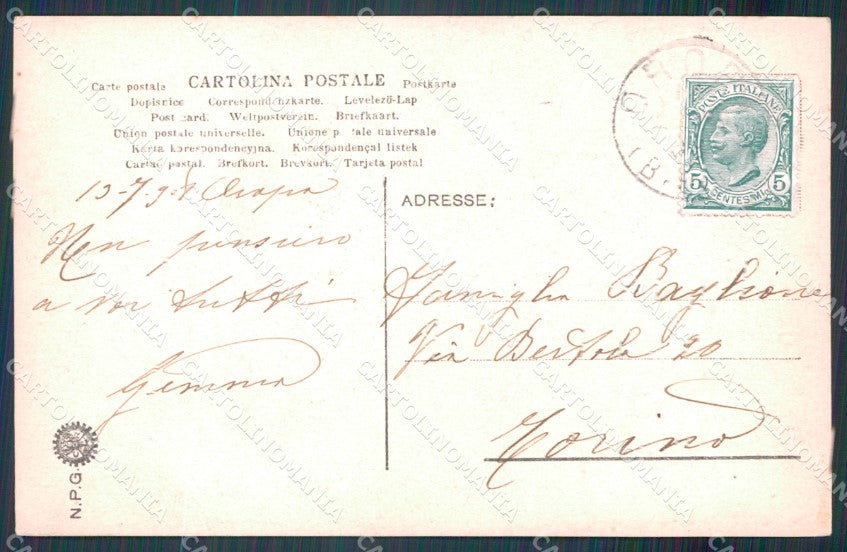 Carte postale CARTOLINA POSTALE Postkarte
Dopisnice Correspondenzkarte. Levelező-Lap
Post card. Weltpostverein. Briefkaart.
Union postale universelle. Unione p tale universale
Karta korespondencyjna. Korespondençal listek
Cartao postal. Brefkort. Brevkort. Tarjeta postal
POSTE ITALIANE
5 5
CENTESIMI
Oropa
ADRESSE:
pensiero
a voi tutti
Gemma
Famiglia Baglione
Via Bertola 20
Torino
N.P.G.
CARTOLINOMANIA